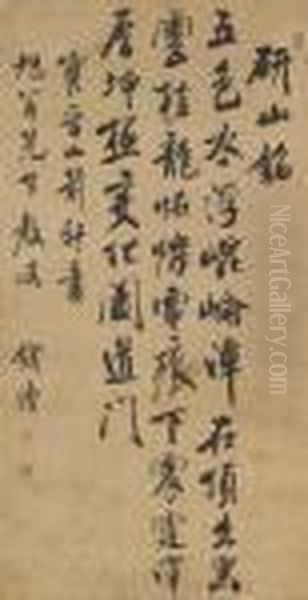 研山銘
五色水浮崑崙潭在頂出黑
雲挂龍怪爍電痕下震霆澤
厚坤極變化闔道門
寶晉山前軒書